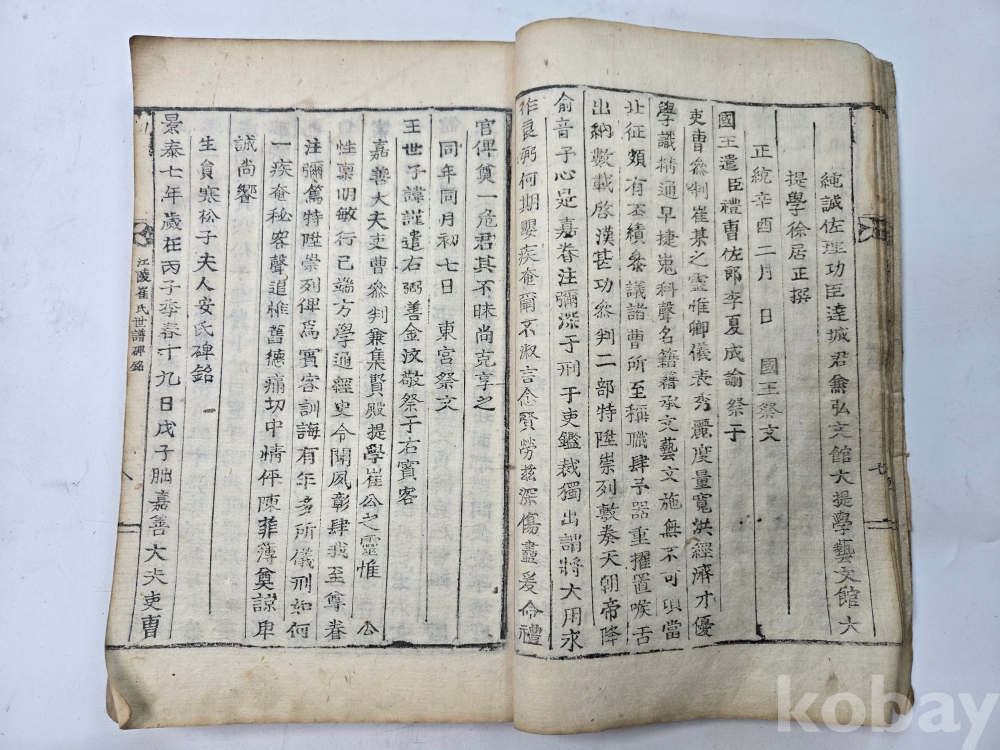 純誠佐理功臣達城君兼弘文館大提學藝文館大
提學徐居正撰
正統辛酉二月 日 國王祭文
國王遣臣禮曹佐郎李夏成諭祭于
吏曹叅判崔某之靈惟卿儀表秀麗度量寬洪經濟才優
學識精通早捷嵬科聲名籍籍承文藝文施無不可頃當
北征頗有丕績叅議諸曹所至稱職肆予器重擢置喉舌
出納數載啓漢甚功叅判二部特陞崇列敷奏天朝帝降
俞音予心是嘉眷注彌深于刑于吏鑑裁獨出謂將大用求
作良弼何期嬰疾奄爾不淑言念賢勞玆深傷盡爰命禮
官俾奠一危君其不昧尚克享之
同年同月初七日 東宮祭文
王世子諱謹遣右弼善金汶敬祭于右賓客
嘉善大夫吏曹叅判兼集賢殿提學崔公之靈惟 公
性稟明敏行已端方學通經史令聞夙彰肆我至尊眷
注彌篤特陞崇列俾爲賓客訓誨有年多所儀刑如何
一疾奄秘容聲追惟舊德痛切中情伻陳菲薄奠諒卑
誠尚饗
生負寒松子夫人安氏碑銘
景泰七年歲在丙子季春十九日戊子嘉善大夫吏曹
江陵崔氏世譜碑銘
八
七
kobay